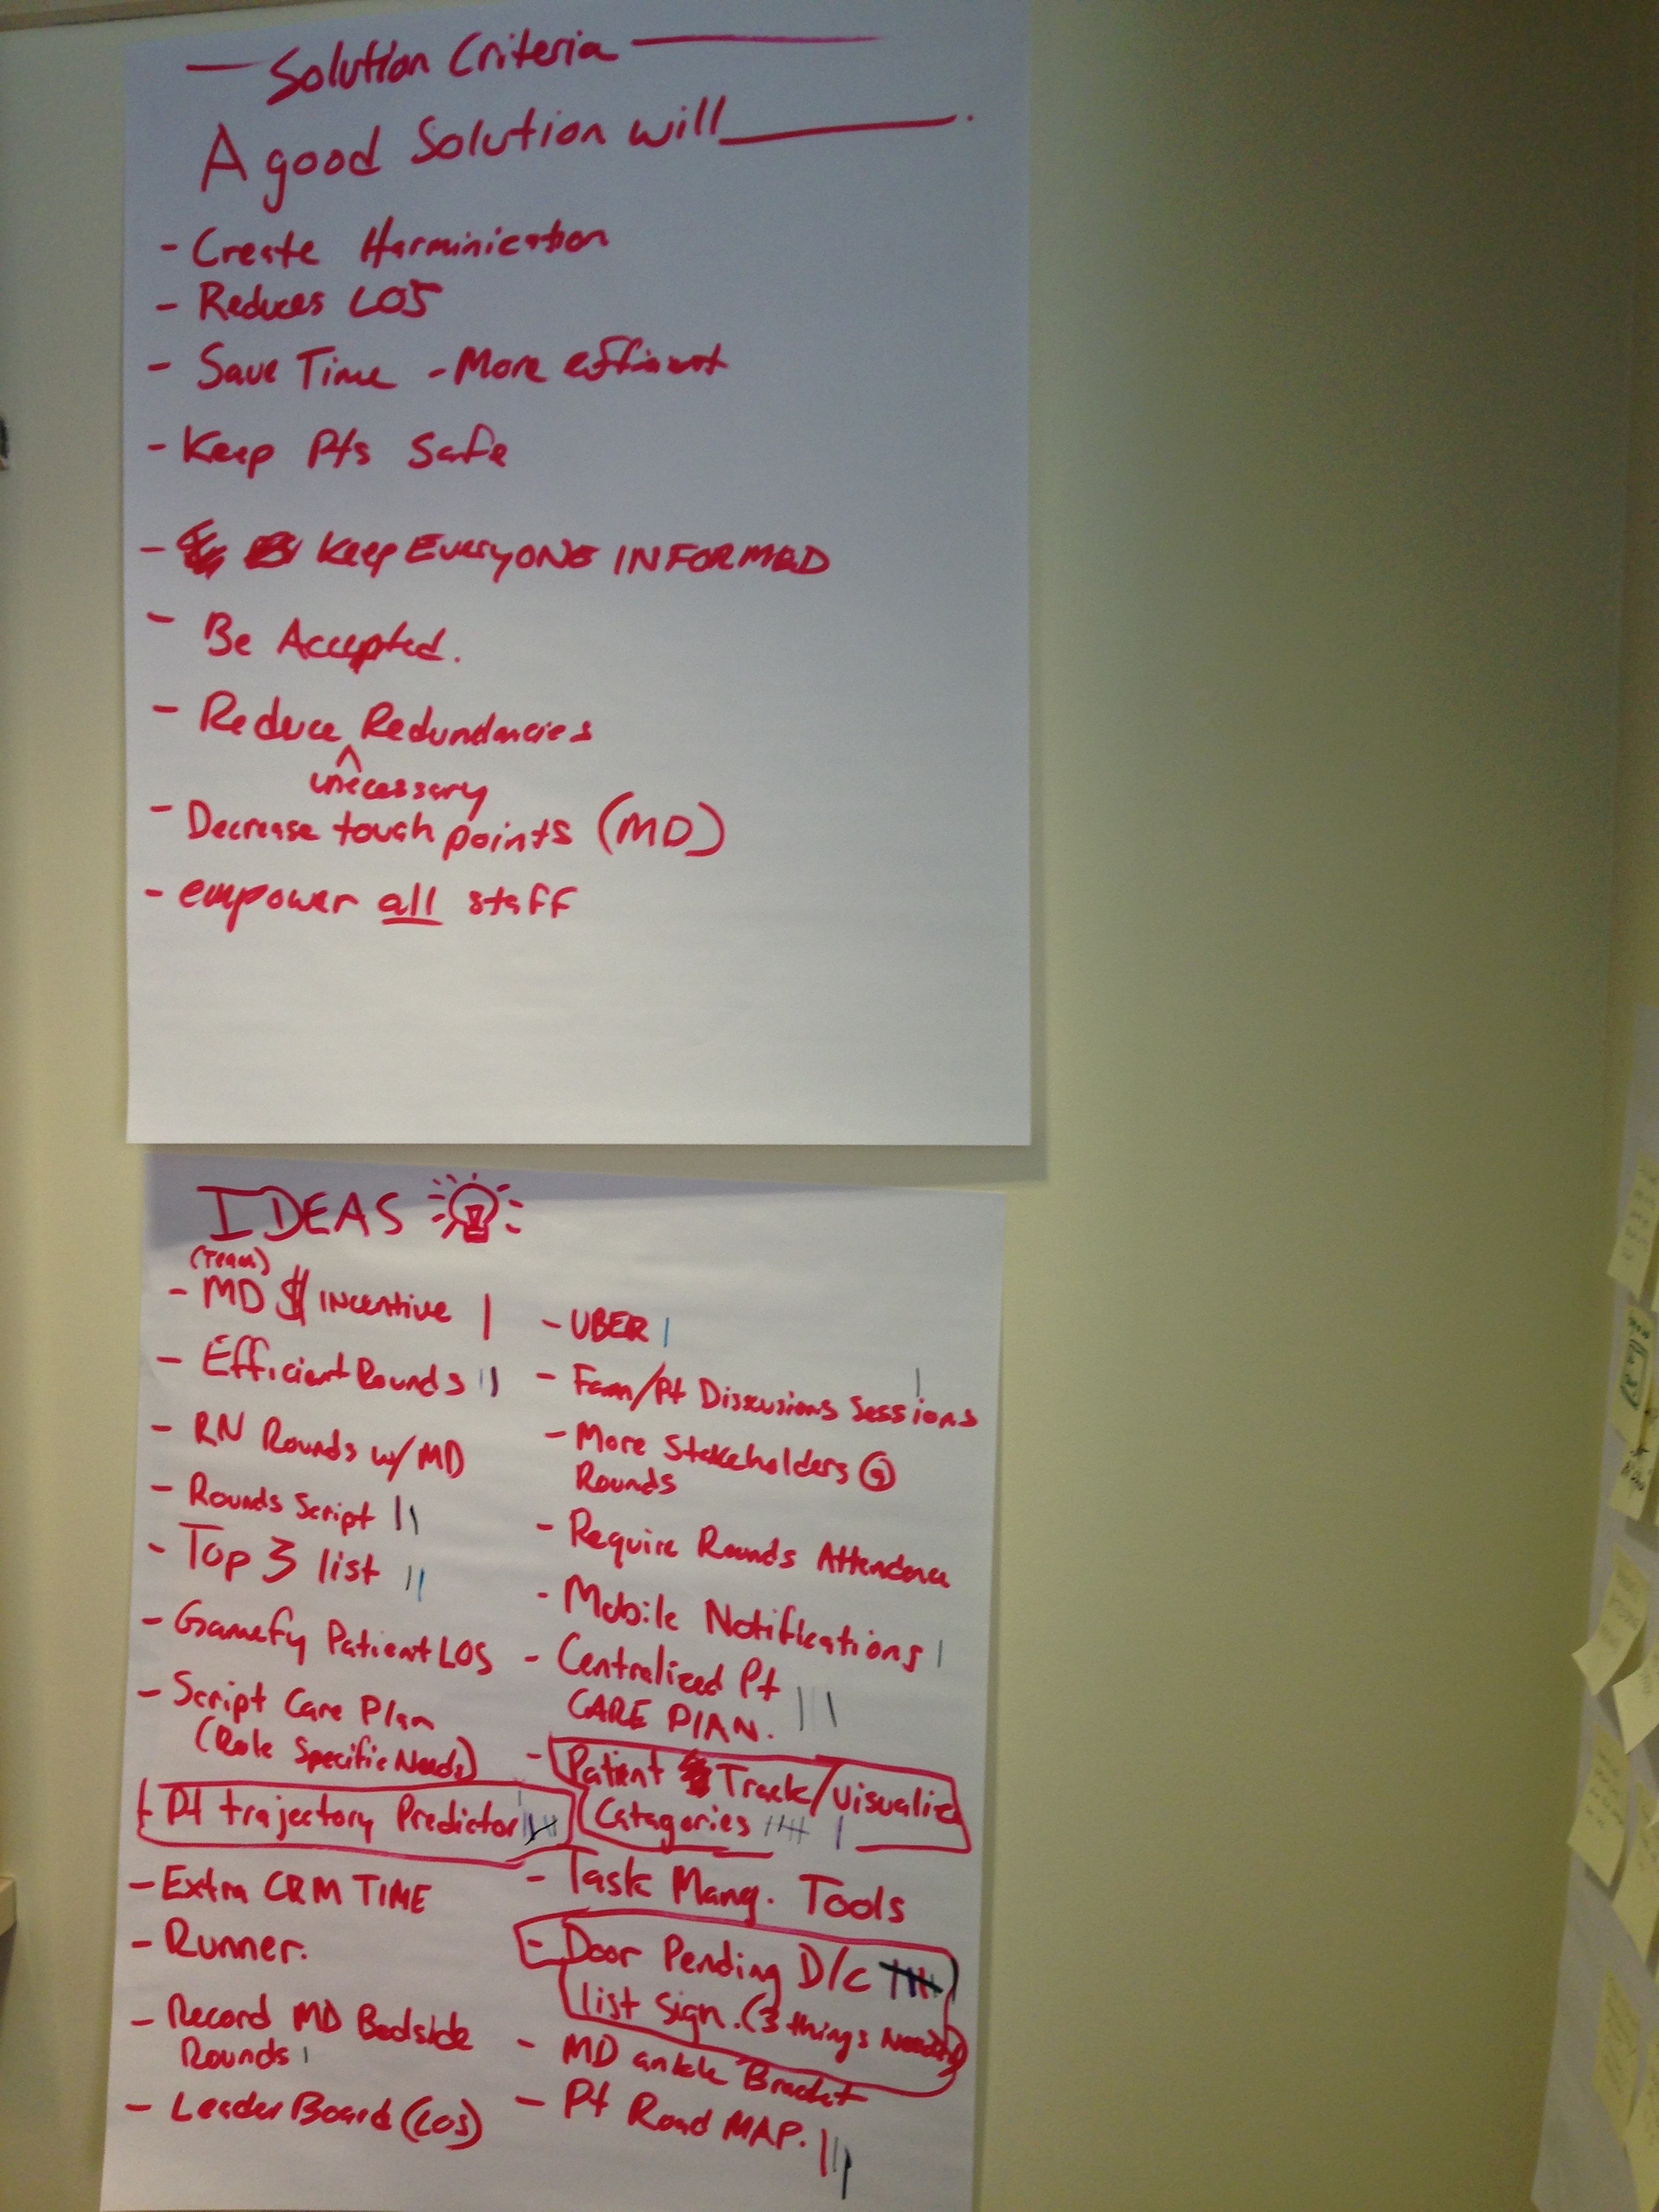 Solution Criteria
A good Solution will ______.
- Create Harminication
- Reduces LOS
- Save Time - More efficient
- Keep Pts Safe
- Keep EveryONE INFORMED
- Be Accepted.
- Reduce Redundancies
unecessary
- Decrease touch points (MD)
- empower all staff
IDEAS
(Team)
- MD $ INcentive |
- Efficient Rounds ||
- RN Rounds w/ MD
- Rounds Script ||
- Top 3 list ||
- Gamefy Patient LOS
- Script Care Plan
(Role Specific Needs)
- Pt trajectory Predictor
- Extra CRM TIME
- Runner.
- Record MD Bedside
Rounds |
- Leader Board (LOS)
- UBER |
- Fam/Pt Discusions Sessions |
- More Stakeholders @
Rounds
- Require Rounds Attendence
- Mobile Notifications |
- Centralized Pt
CARE PLAN. |||
- Patient Track/Visualize
Catagories |||| |
- Task Mang. Tools
- Door Pending D/C
list Sign. (3 things Needed)
- MD ankle Bracket
- Pt Road MAP. |||